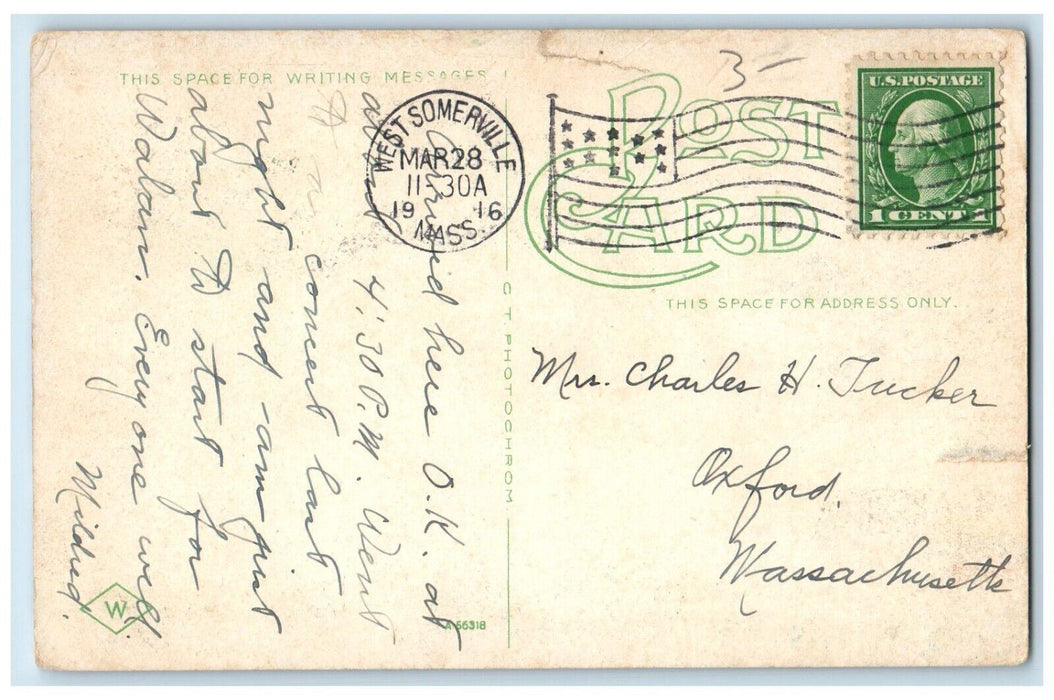 THIS SPACE FOR WRITING MESSAGES
Arrived here O.K. at
about 4:30 P.M. Went
to concert last
night and am just
about to start for
Waban. Every one well.
Mildred.
WEST SOMERVILLE
MAR 28
11-30A
19 16
MASS.
C T PHOTOCHROM
W
A-56318
3-
POST
CARD
U.S. POSTAGE
1 CENT 1
THIS SPACE FOR ADDRESS ONLY.
Mrs. Charles H. Tucker
Oxford,
Massachusetts